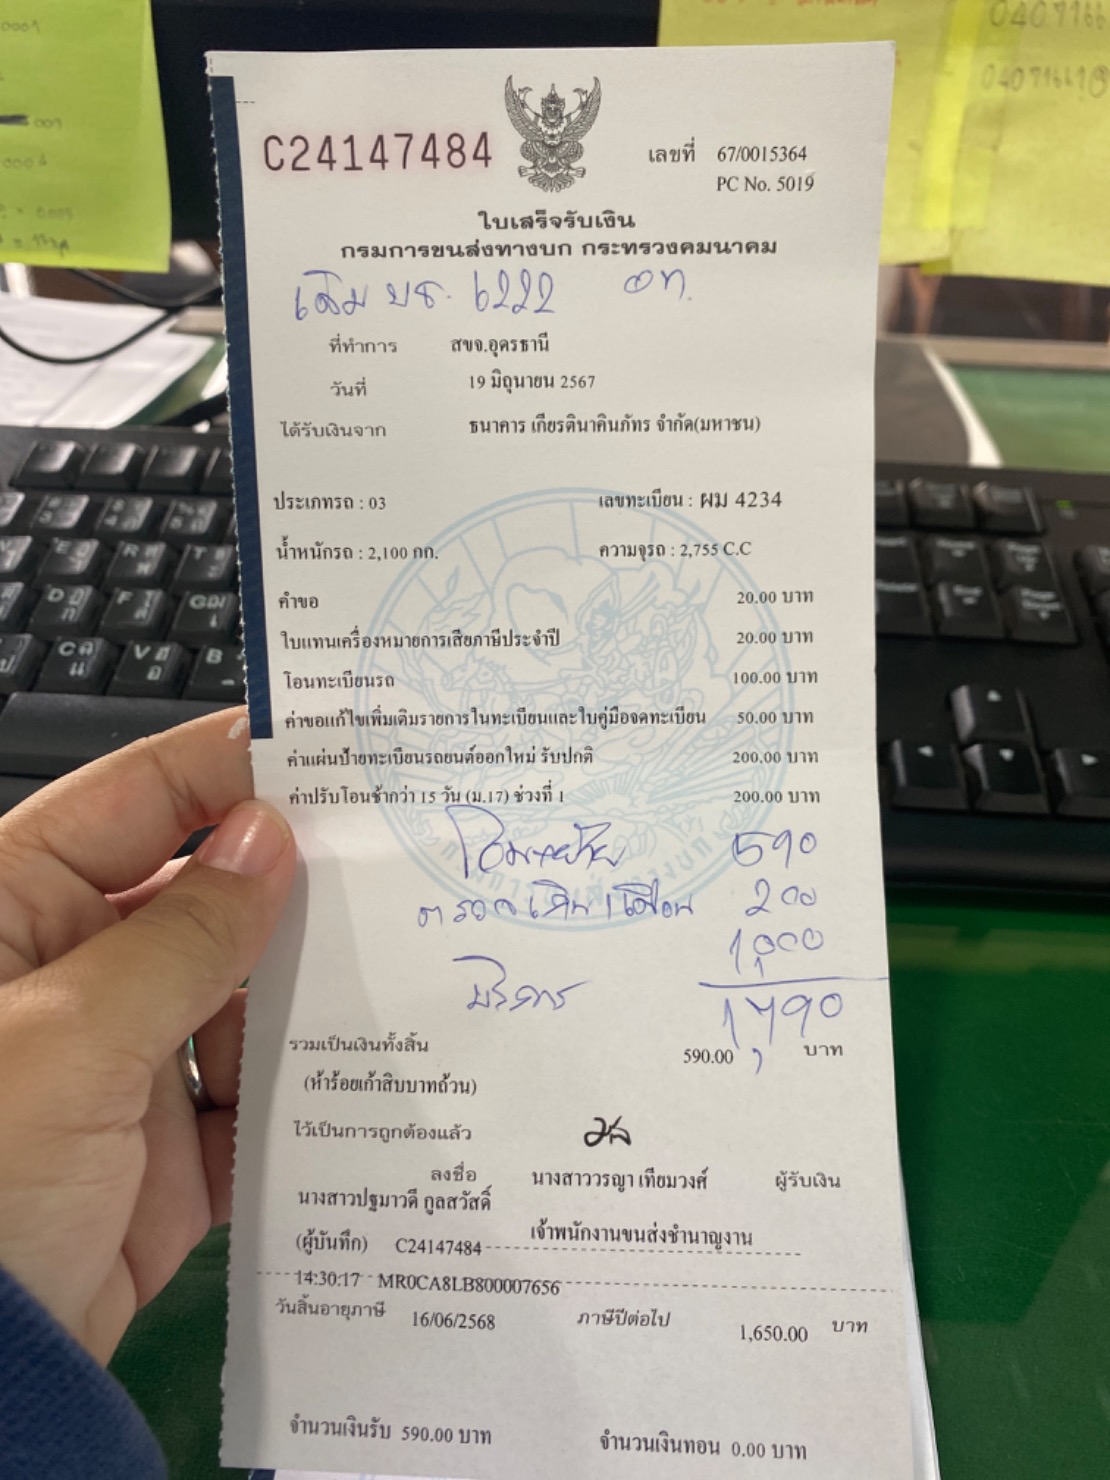 C24147484
เลขที่ 67/0015364
PC No. 5019
ใบเสร็จรับเงิน
กรมการขนส่งทางบก กระทรวงคมนาคม
เดิม บธ. 6222 อท.
ที่ทำการ สขจ.อุดรธานี
วันที่ 19 มิถุนายน 2567
ได้รับเงินจาก ธนาคาร เกียรตินาคินภัทร จำกัด(มหาชน)
ประเภทรถ : 03 เลขทะเบียน : ผม 4234
น้ำหนักรถ : 2,100 กก. ความจุรถ : 2,755 C.C
คำขอ 20.00 บาท
ใบแทนเครื่องหมายการเสียภาษีประจำปี 20.00 บาท
โอนทะเบียนรถ 100.00 บาท
ค่าขอแก้ไขเพิ่มเติมรายการในทะเบียนและใบคู่มือจดทะเบียน 50.00 บาท
ค่าแผ่นป้ายทะเบียนรถยนต์ออกใหม่ รับปกติ 200.00 บาท
ค่าปรับโอนช้ากว่า 15 วัน (ม.17) ช่วงที่ 1 200.00 บาท
590
ตรวจ 200
1,000
บริการ
1,790
รวมเป็นเงินทั้งสิ้น 590.00 บาท
(ห้าร้อยเก้าสิบบาทถ้วน)
ไว้เป็นการถูกต้องแล้ว
ลงชื่อ นางสาววรญา เทียมวงศ์ ผู้รับเงิน
นางสาวปฐมาวดี กูลสวัสดิ์
(ผู้บันทึก) C24147484 เจ้าพนักงานขนส่งชำนาญงาน
14:30:17 MR0CA8LB800007656
วันสิ้นอายุภาษี 16/06/2568 ภาษีปีต่อไป 1,650.00 บาท
จำนวนเงินรับ 590.00 บาท จำนวนเงินทอน 0.00 บาท